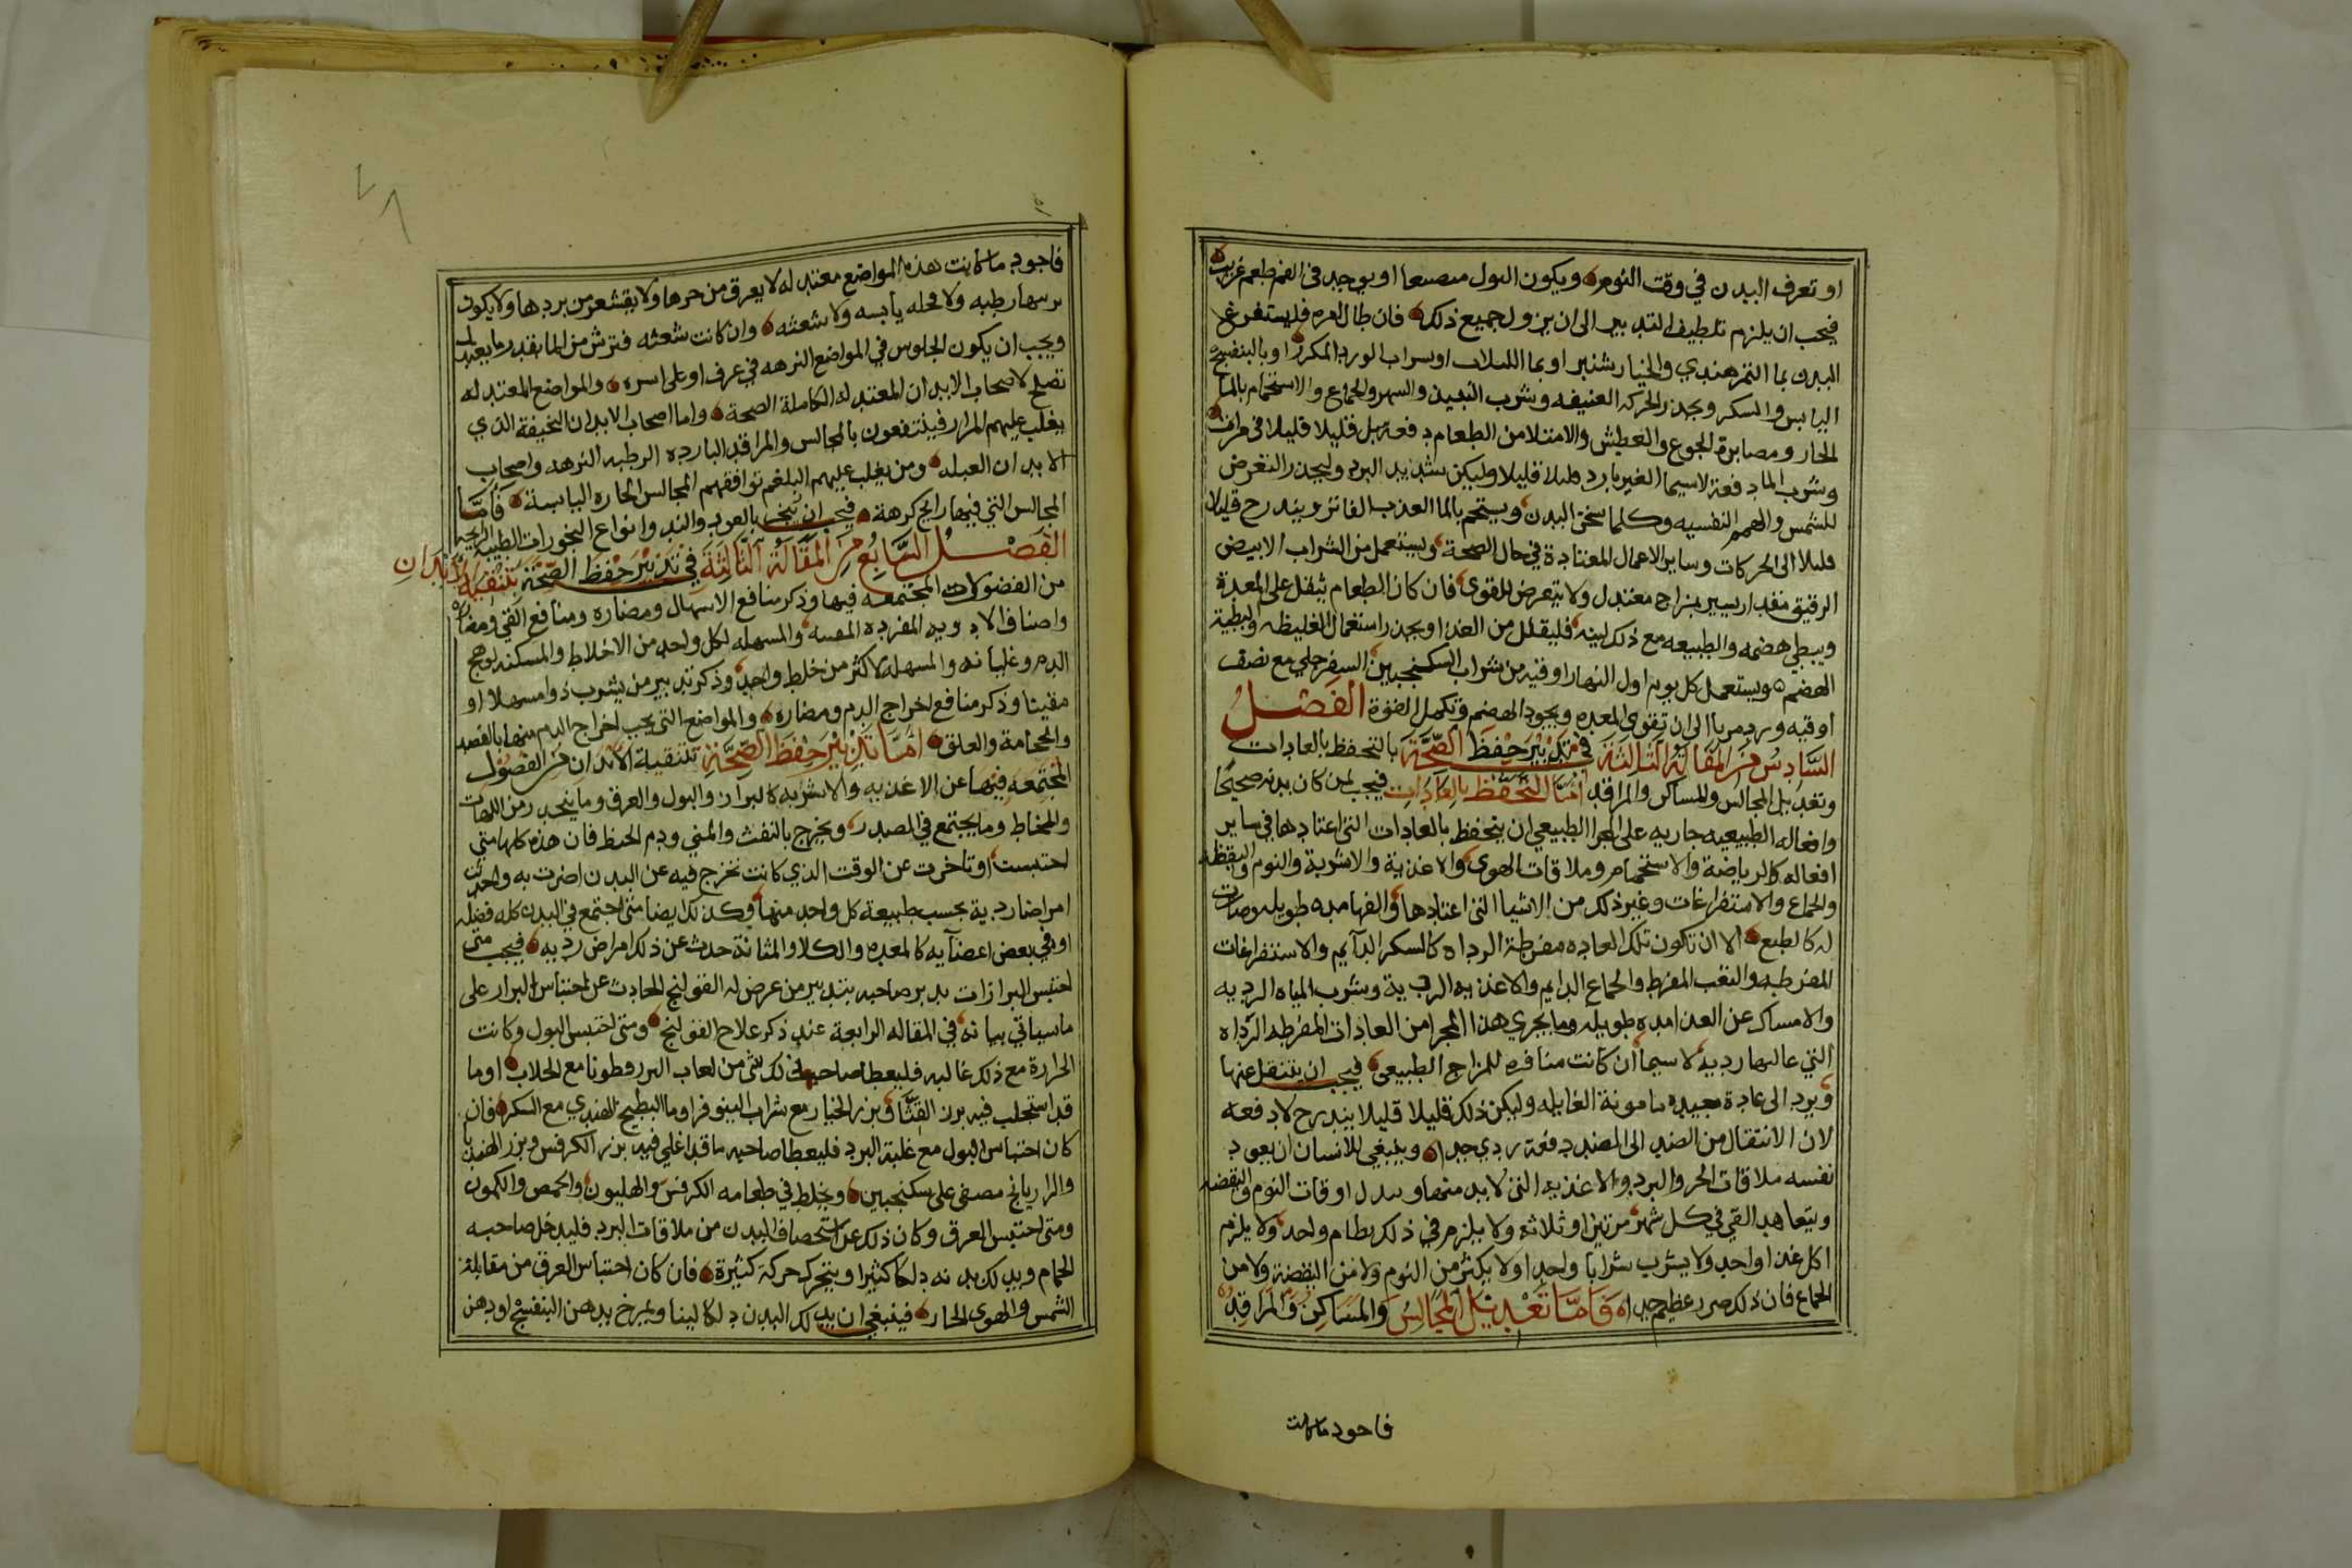 او تعرف البدن في وقت النوم ويكون البول منصبغا او يوجد في الفم طعم غريب
فيجب ان يلزم تلطيف التدبير الى ان يزول جميع ذلك فان طال امره فليستفرغ
البدن بما التمر هندي والخيار شنبر او بما اللبلاب او بشراب الورد المكرر او بالبنفسج
اليابس والسكر ويحذر الحركه العنيفه وشرب النبيذ والسهر والجماع والاستحمام بالما
الحار ومصابرة الجوع والعطش والامتلا من الطعام دفعة بل قليلا قليلا في مرات
وشرب الما دفعة لاسيما الغير بارد قليلا قليلا وليكن شديد البرد وليحذر التعرض
للشمس والهم النفسيه وكلما سخن البدن ويستحم بالما العذب الفاتر ويتدرج قليلا
قليلا الى الحركات وساير الاعمال المعتادة في حال الصحة ويستعمل من الشراب الابيض
الرقيق مقدار يسير بمزاج معتدل ولا يتعرض للقوى فان كان الطعام يثقل على المعدة
ويبطي هضمه والطبيعه مع ذلك لينه فليقلل من الغذا ويحذر استعمال الغليظه والبطية
الهضم ويستعمل كل يوم اول النهار اوقيه من شراب السكنجبين السفرجلي مع نصف
اوقيه ورد مربا الى ان تقوى المعده ويجود الهضم وتكمل القوة الفصل
السادس من المقالة الثالثة في تدبير حفظ الصحة بالتحفظ بالعادات
وتعديل المجالس والمساكن والمراقد اما التحفظ بالعادات فيجب لمن كان بدنه صحيحا
وافعاله الطبيعيه جاريه على المجرا الطبيعي ان يتحفظ بالعادات التي اعتادها في ساير
افعاله كالرياضة والاستحمام وملاقات الهوى والاغذية والاشربة والنوم واليقظه
والجماع والاستفراغات وغير ذلك من الاشيا التي اعتادها والفها مده طويله وصارت
له كالطبع الا ان تكون تلك العاده مفرطة الرداه كالسكر الدآيم والاستفراغات
المفرطه والتعب المفرط والجماع الدايم والاغذيه الردية وشرب المياه الرديه
والامساك عن الغذا مده طويله وما يجري هذا المجرا من العادات المفرطه الرداه
التي غالبها رديه لاسيما ان كانت منافره للمزاج الطبيعي فيجب ان ينتقل عنها
ويرد الى عادة جيده مامونة الغايله وليكن ذلك قليلا قليلا بتدرج لا دفعه
لان الانتقال من الضد الى الضد دفعة ردي جدا وينبغي للانسان ان يعود
نفسه ملاقات الحر والبرد والاغذيه التي لابد منها ويبدل اوقات النوم واليقضه
ويتعاهد القي في كل شهر مرتين او ثلاثه ولا يلزم في ذلك نظام واحد ولا يلزم
اكل غذا واحد ولا يشرب شرابا واحدا ولا يكثر من النوم ولا من اليقضة ولا من
الجماع فان ذلك ضرر عظيم جدا واما تعديل المجالس والمساكن والمراقد
فاجود ماكانت
فاجود ما كانت هذه المواضع معتدله لا يعرق من حرها ولا يقشعر من بردها ولا يكون
رطبه ولا قحله يابسه ولا شعثه وان كانت شعثه فترش من الما بقدر ما يعتدل
ويجب ان يكون الجلوس في المواضع النزهه في غرف او على اسره والمواضع المعتدله
تصلح لاصحاب الابدان المعتدله الكاملة الصحة واما اصحاب الابدان النحيفة الذي
يغلب عليهم المرار فينتفعون بالمجالس والمراقد البارده الرطبه النزهه واصحاب
الابدان العبله ومن يغلب عليهم البلغم توافقهم المجالس الحاره اليابسة فاما
المجالس التي فيها رايح كرهة فيجب ان تبخر بالعود والند وانواع البخورات الطيبة الريحه
الفصل السابع من المقالة الثالثة في تدبير حفظ الصحة بتنقية الابدان
من الفضولات المجتمعه فيها وذكر منافع الاسهال ومضاره ومنافع القي ومضاره
واصناف الادويه المفرده المقيه والمسهله لكل واحد من الاخلاط والمسكنه لوهج
الدم وغليانه والمسهله لاكثر من خلط واحد وذكر تدبير من يشرب دوا مسهلا او
مقيئا وذكر منافع اخراج الدم ومضاره والمواضع التي يجب اخراج الدم منها بالفصد
والحجامة والعلق اما تدبير حفظ الصحة بتنقية الابدان من الفضول
المجتمعه فيها عن الاغذيه والاشربه كالبراز والبول والعرق وما ينحدر من اللهات
والمخاط وما يجتمع في الصدر ويخرج بالنفث والمني ودم الحيظ فان هذه كلها متى
احتبست او تاخرت عن الوقت الذي كانت تخرج فيه عن البدن اضرت به واحدثت
امراضا ردية بحسب طبيعة كل واحد منها وكذلك ايضا متى اجتمع في البدن كله فضله
او في بعض اعضآيه كالمعده والكلا والمثانة حدث عن ذلك امراض رديه فيجب متى
احتبس البراز ان يدبر صاحبه بتدبير من عرض له القولنج الحادث عن احتباس البراز على
ما سياتي بيانه في المقاله الرابعة عند ذكر علاج القولنج ومتى احتبس البول وكانت
الحرارة مع ذلك غالبه فليعطا صاحب ذلك شي من لعاب البزر قطونا مع الجلاب او ما
قد استحلب فيه بزر القثا وبزر الخيار مع شراب النينوفر او ما البطيخ الهندي مع السكر فان
كان احتباس البول مع غلبة البرد فليعطا صاحبه ما قد اغلي فيه بزر الكرفس وبزر الهندبا
والرازيانج مصفى على سكنجبين ويخلط في طعامه الكرفس والهليون والحمص والكمون
ومتى احتبس العرق وكان ذلك عن استحصاف البدن من ملاقات البرد فليدخل صاحبه
الحمام ويدلك بدنه دلكا كثيرا ويتحرك حركة كثيرة فان كان احتباس العرق من مقابلة
الشمس والهوى الحار فينبغي ان يدلك البدن دلكا لينا ويمرخ بدهن البنفسج او دهن